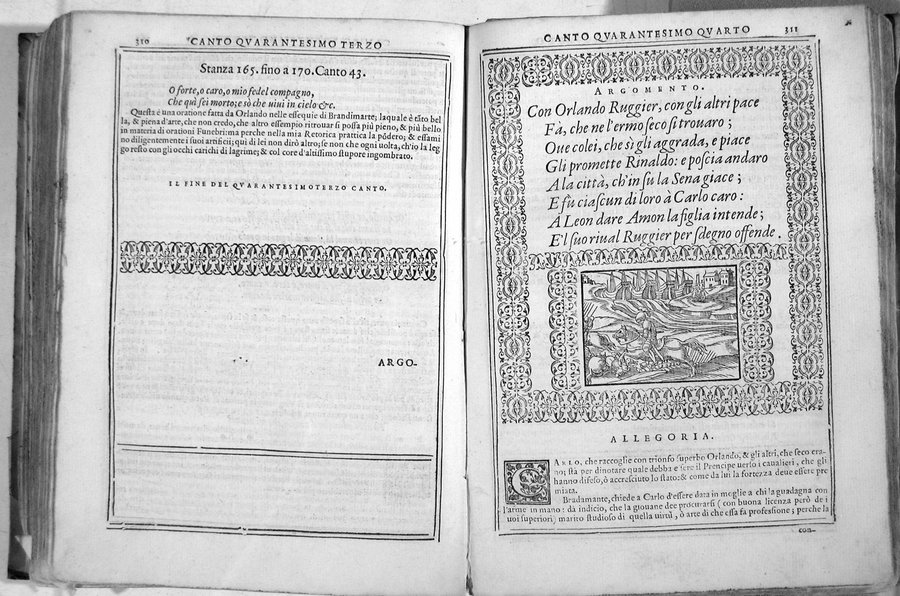 310
CANTO QVARANTESIMO TERZO
Stanza 165. fino a 170. Canto 43.
O forte, o caro, o mio fedel compagno,
Che quì sei morto; e sò che uiui in cielo &c.
Questa è una oratione fatta da Orlando nelle essequie di Brandimarte; laquale è tãto bel
la, & piena d'arte, che non credo, che altro essempio ritrouar si possa più pieno, & più bello
in materia di orationi Funebri: ma perche nella mia Retorica prattica la põdero; & essami
no diligentemente i suoi artificij; qui di lei non dirò altro; se non che ogni uolta, ch'io la leg
go resto con gli occhi carichi di lagrime; & col core d'altissimo stupore ingombrato.
IL FINE DEL QVARANTESIMOTERZO CANTO.
ARGO-
CANTO QVARANTESIMO QVARTO
311
ARGOMENTO.
Con Orlando Ruggier, con gli altri pace
Fà, che ne l'ermo seco si trouaro;
Oue colei, che sì gli aggrada, e piace
Gli promette Rinaldo: e poscia andaro
A la città, ch'in su la Sena giace;
E fù ciascun di loro à Carlo caro:
A Leon dare Amon la figlia intende;
E'l suo riual Ruggier per sdegno offende.
ALLEGORIA.
CARLO, che raccoglie con trionfo superbo Orlando, & gli altri, che seco era
no; sta per dinotare quale debba essere il Prencipe uerso i caualieri, che gli
hanno difeso, ò accresciuto lo stato: & come da lui la fortezza deue essere pre
miata.
Bradamante, chiede a Carlo d'essere data in moglie a chi la guadagna con
l'arme in mano: da indicio, che la giouane dee procurarsi (con buona licenza però de i
uoi superiori) marito studioso di quella uirtù, ò arte di che essa fa professione; perche la
con-